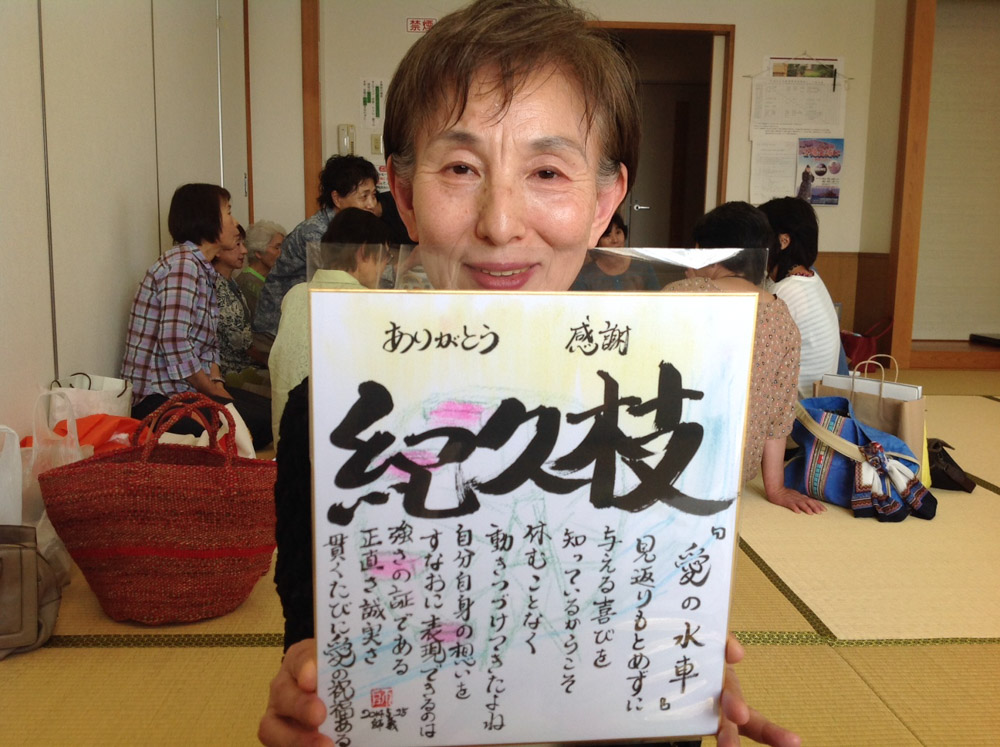 禁煙
ありがとう 感謝
紀久枝
『愛の水車』
見返りもとめずに
与える喜びを
知っているからこそ
休むことなく
動きつづけてきたよね
自分自身の想いを
すなおに表現できるのは
強さの証である
正直さ誠実さ
貫くたびに愛の祝福ある